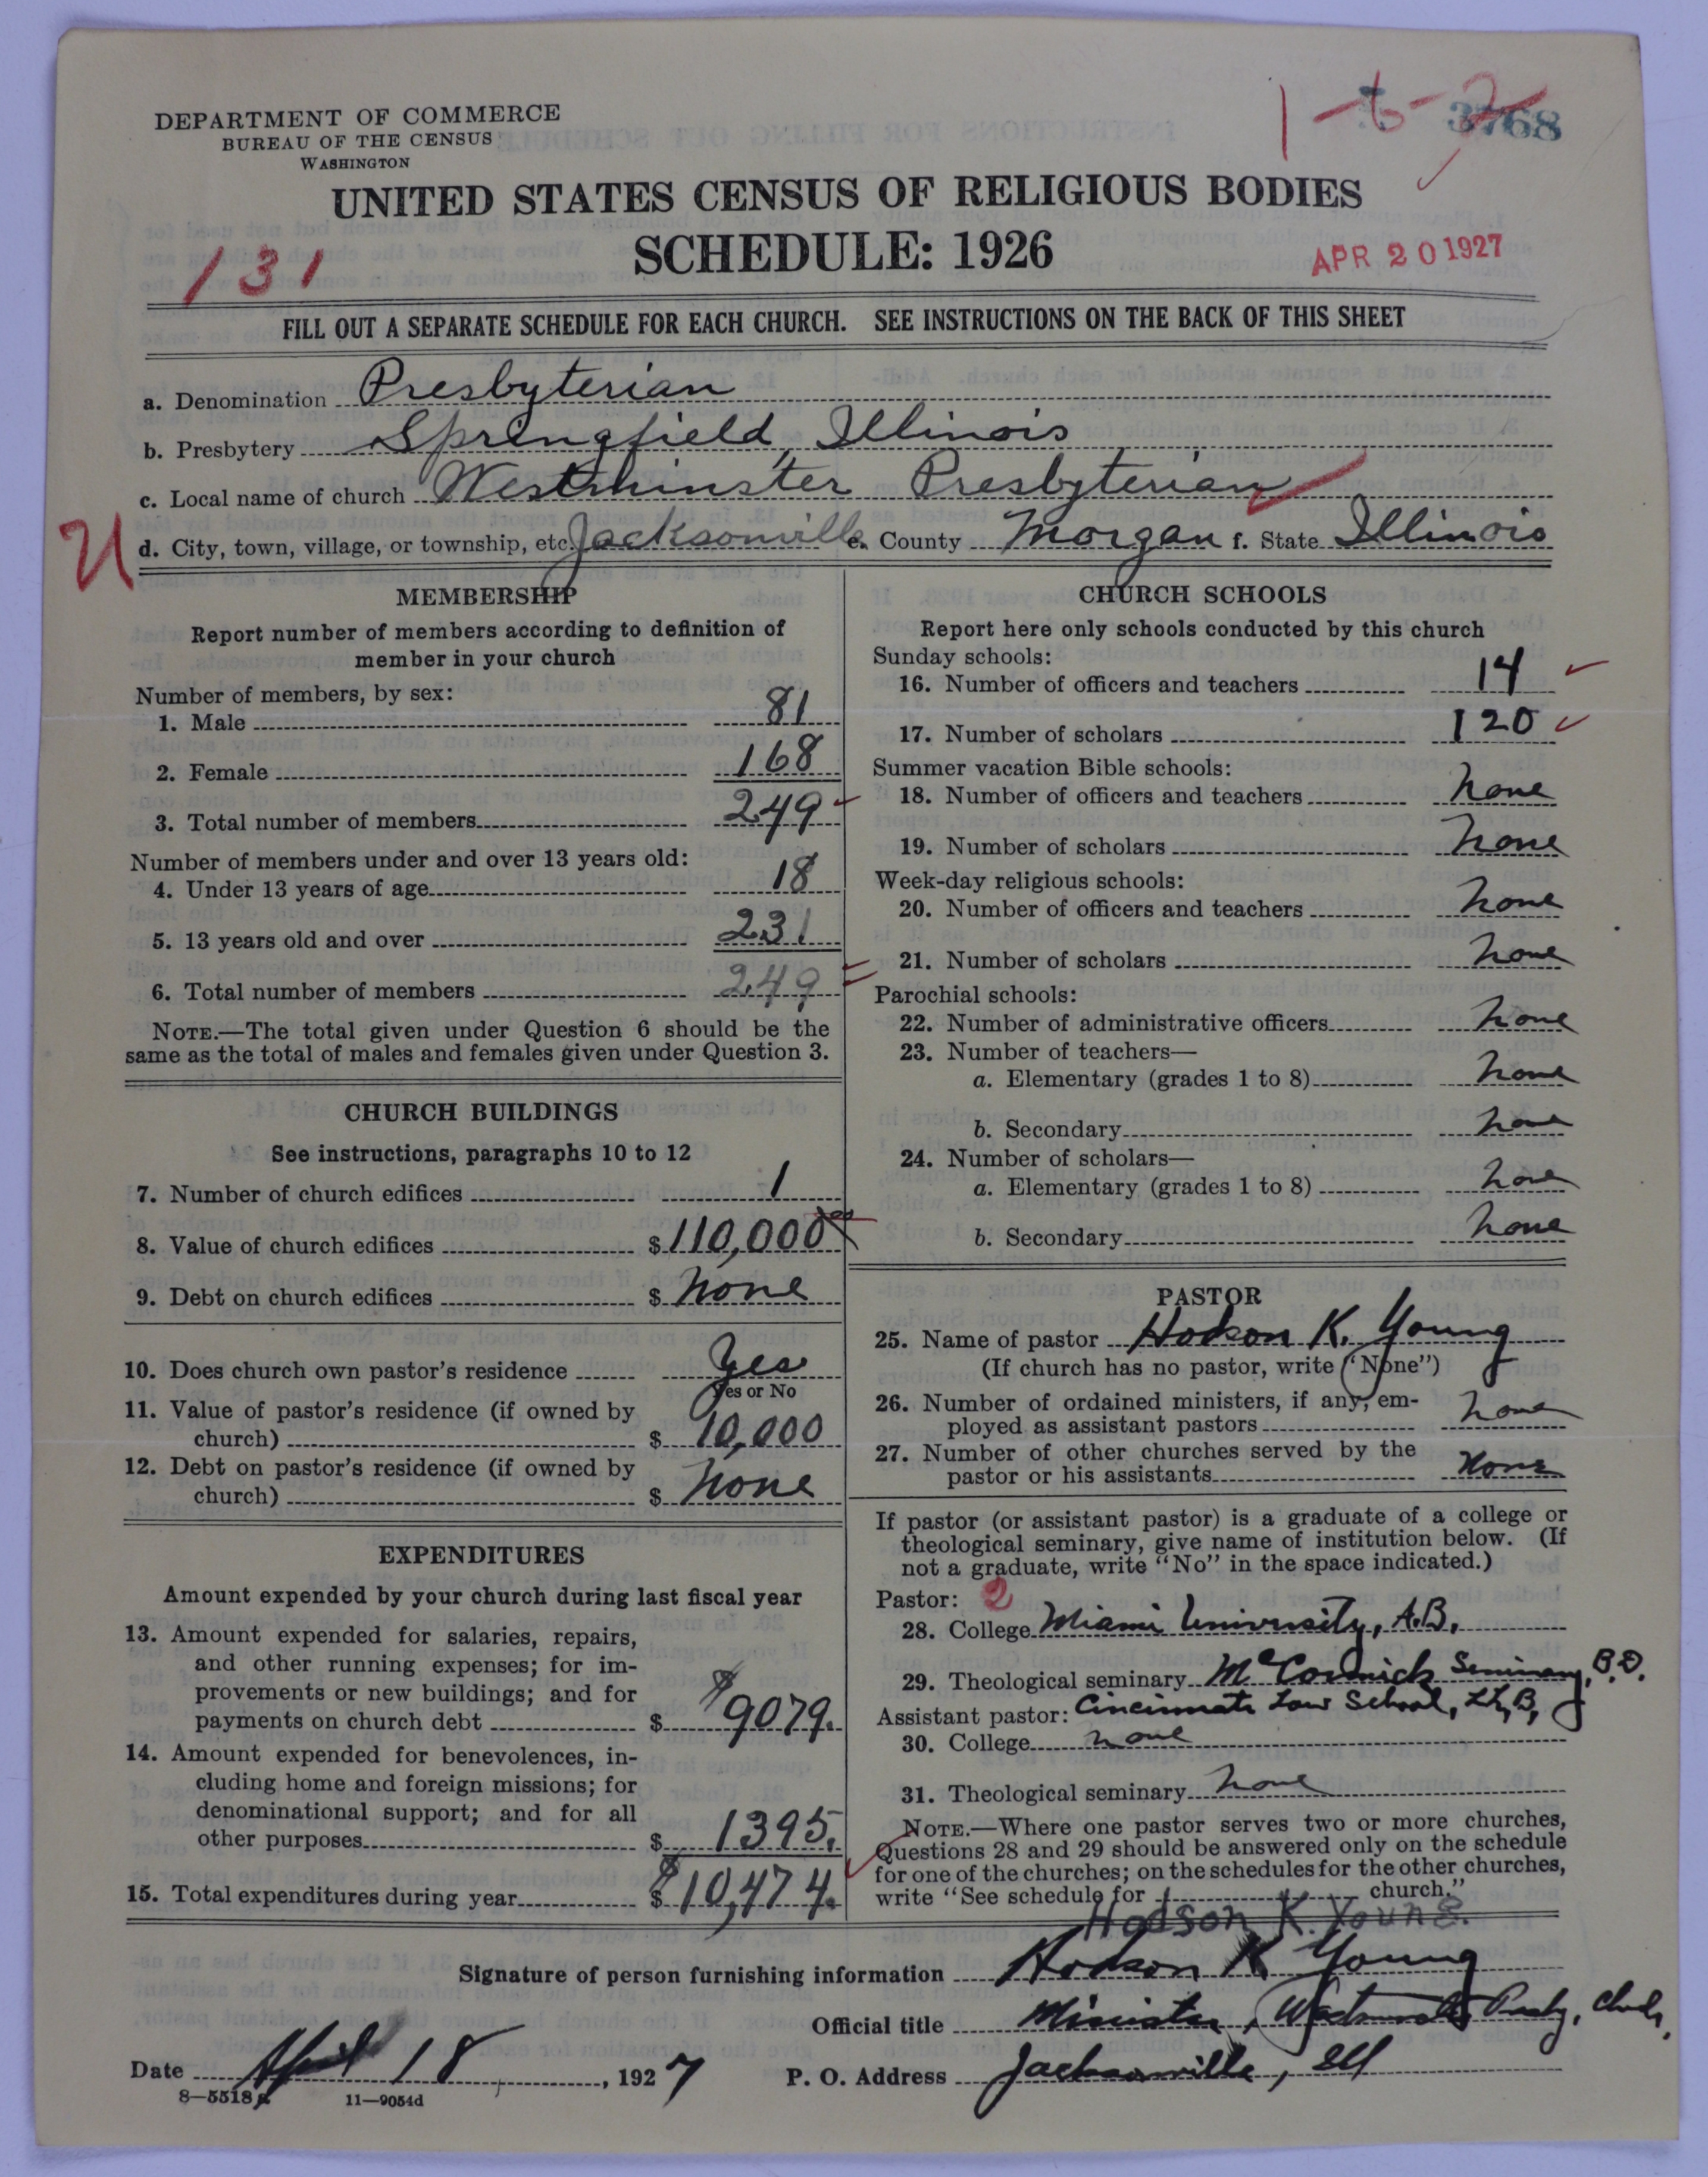 DEPARTMENT OF COMMERCE
BUREAU OF THE CENSUS
WASHINGTON
1-6-2 3768
UNITED STATES CENSUS OF RELIGIOUS BODIES
SCHEDULE: 1926
131
APR 20 1927
FILL OUT A SEPARATE SCHEDULE FOR EACH CHURCH. SEE INSTRUCTIONS ON THE BACK OF THIS SHEET
a. Denomination Presbyterian
b. Presbytery Springfield, Illinois
c. Local name of church Westminster Presbyterian
U d. City, town, village, or township, etc. Jacksonville e. County Morgan f. State Illinois
MEMBERSHIP
Report number of members according to definition of
member in your church
Number of members, by sex:
1. Male 81
2. Female 168
3. Total number of members 249
Number of members under and over 13 years old:
4. Under 13 years of age 18
5. 13 years old and over 231
6. Total number of members 249
NOTE.—The total given under Question 6 should be the
same as the total of males and females given under Question 3.
CHURCH BUILDINGS
See instructions, paragraphs 10 to 12
7. Number of church edifices 1
8. Value of church edifices $110,000
9. Debt on church edifices $ None
10. Does church own pastor's residence Yes
Yes or No
11. Value of pastor's residence (if owned by
church) $ 10,000
12. Debt on pastor's residence (if owned by
church) $ None
EXPENDITURES
Amount expended by your church during last fiscal year
13. Amount expended for salaries, repairs,
and other running expenses; for im-
provements or new buildings; and for
payments on church debt $ $9079.
14. Amount expended for benevolences, in-
cluding home and foreign missions; for
denominational support; and for all
other purposes $ 1395.
15. Total expenditures during year $ $10,474.
CHURCH SCHOOLS
Report here only schools conducted by this church
Sunday schools:
16. Number of officers and teachers 14
17. Number of scholars 120
Summer vacation Bible schools:
18. Number of officers and teachers None
19. Number of scholars None
Week-day religious schools:
20. Number of officers and teachers None
21. Number of scholars None
Parochial schools:
22. Number of administrative officers None
23. Number of teachers—
a. Elementary (grades 1 to 8) None
b. Secondary None
24. Number of scholars—
a. Elementary (grades 1 to 8) None
b. Secondary None
PASTOR
25. Name of pastor Hodson K. Young
(If church has no pastor, write "None")
26. Number of ordained ministers, if any, em-
ployed as assistant pastors None
27. Number of other churches served by the
pastor or his assistants None
If pastor (or assistant pastor) is a graduate of a college or
theological seminary, give name of institution below. (If
not a graduate, write "No" in the space indicated.)
Pastor: 2
28. College Miami University, A.B.
29. Theological seminary McCormick Seminary, B.D.
Cincinnati Law School, LL.B,
Assistant pastor:
30. College None
31. Theological seminary None
NOTE.—Where one pastor serves two or more churches,
Questions 28 and 29 should be answered only on the schedule
for one of the churches; on the schedules for the other churches,
write "See schedule for church."
Hodson K. Young.
Signature of person furnishing information Hodson K Young
Official title Minister, Westminster Presby. Church,
Date April 18, 1927 P. O. Address Jacksonville, Ill
8—5518 11—9054d